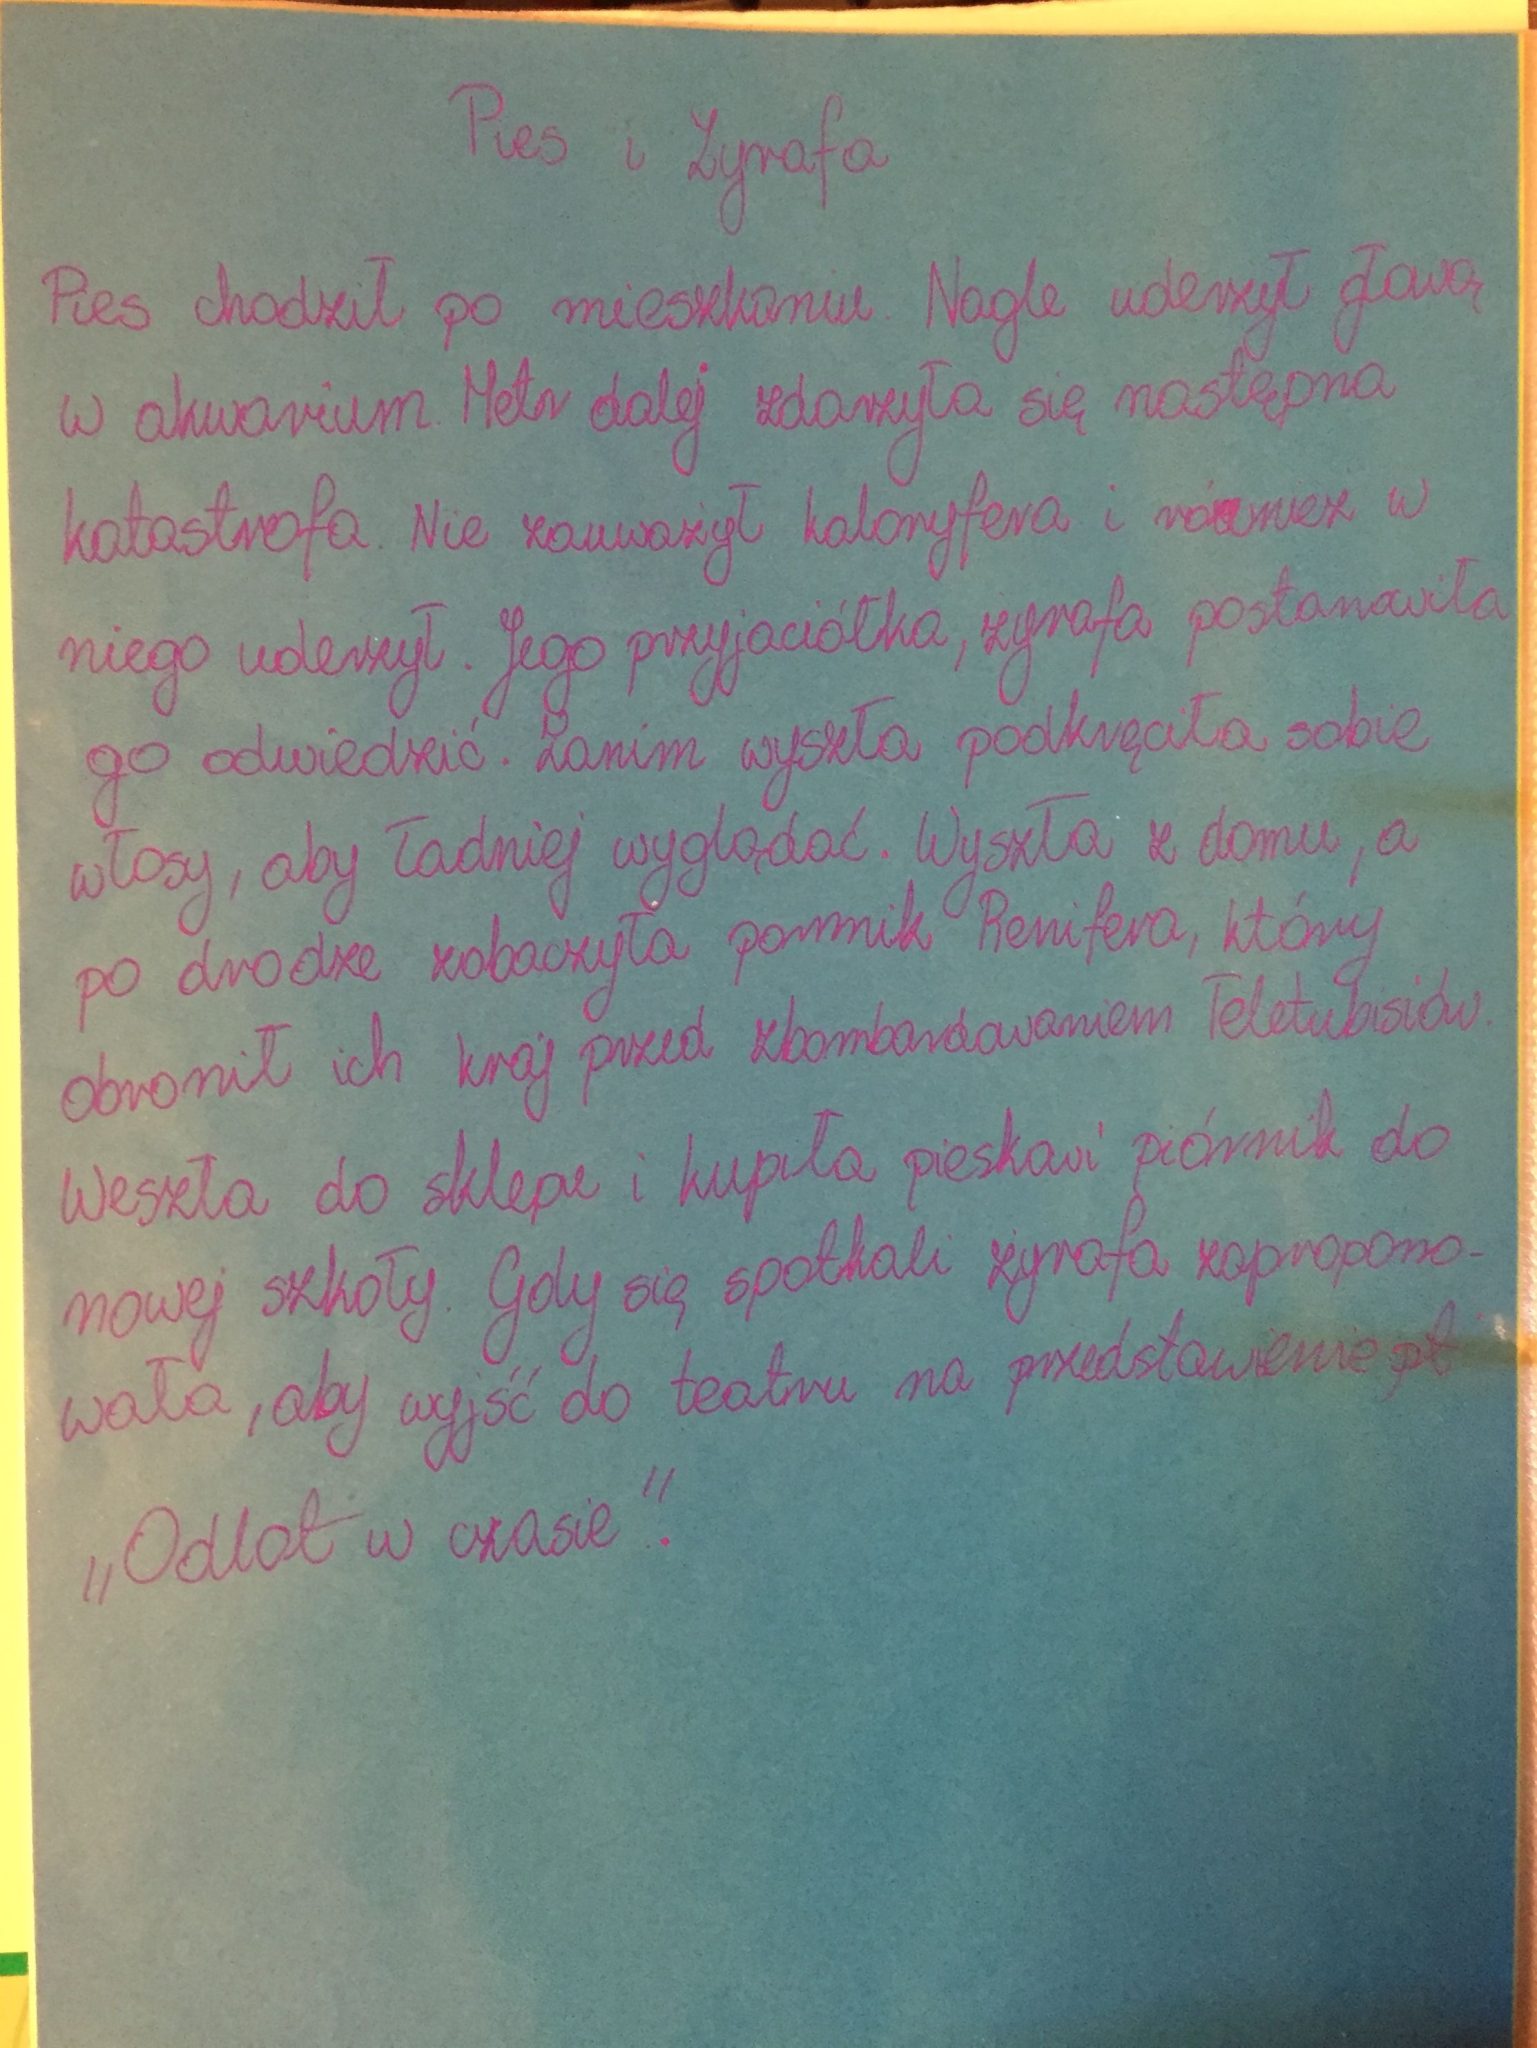 Pies i Żyrafa
Pies chodził po mieszkaniu. Nagle uderzył głową
w akwarium. Metr dalej zdarzyła się następna
katastrofa. Nie zauważył kaloryfera i również w
niego uderzył. Jego przyjaciółka, żyrafa postanowiła
go odwiedzić. Zanim wyszła podkręciła sobie
włosy, aby ładniej wyglądać. Wyszła z domu, a
po drodze zobaczyła pomnik Renifera, który
obronił ich kraj przed zbombardowaniem Teletubisiów.
Weszła do sklepu i kupiła pieskowi piórnik do
nowej szkoły. Gdy się spotkali żyrafa zapropono-
wała, aby wyjść do teatru na przedstawienie pt
„Odlot w czasie".